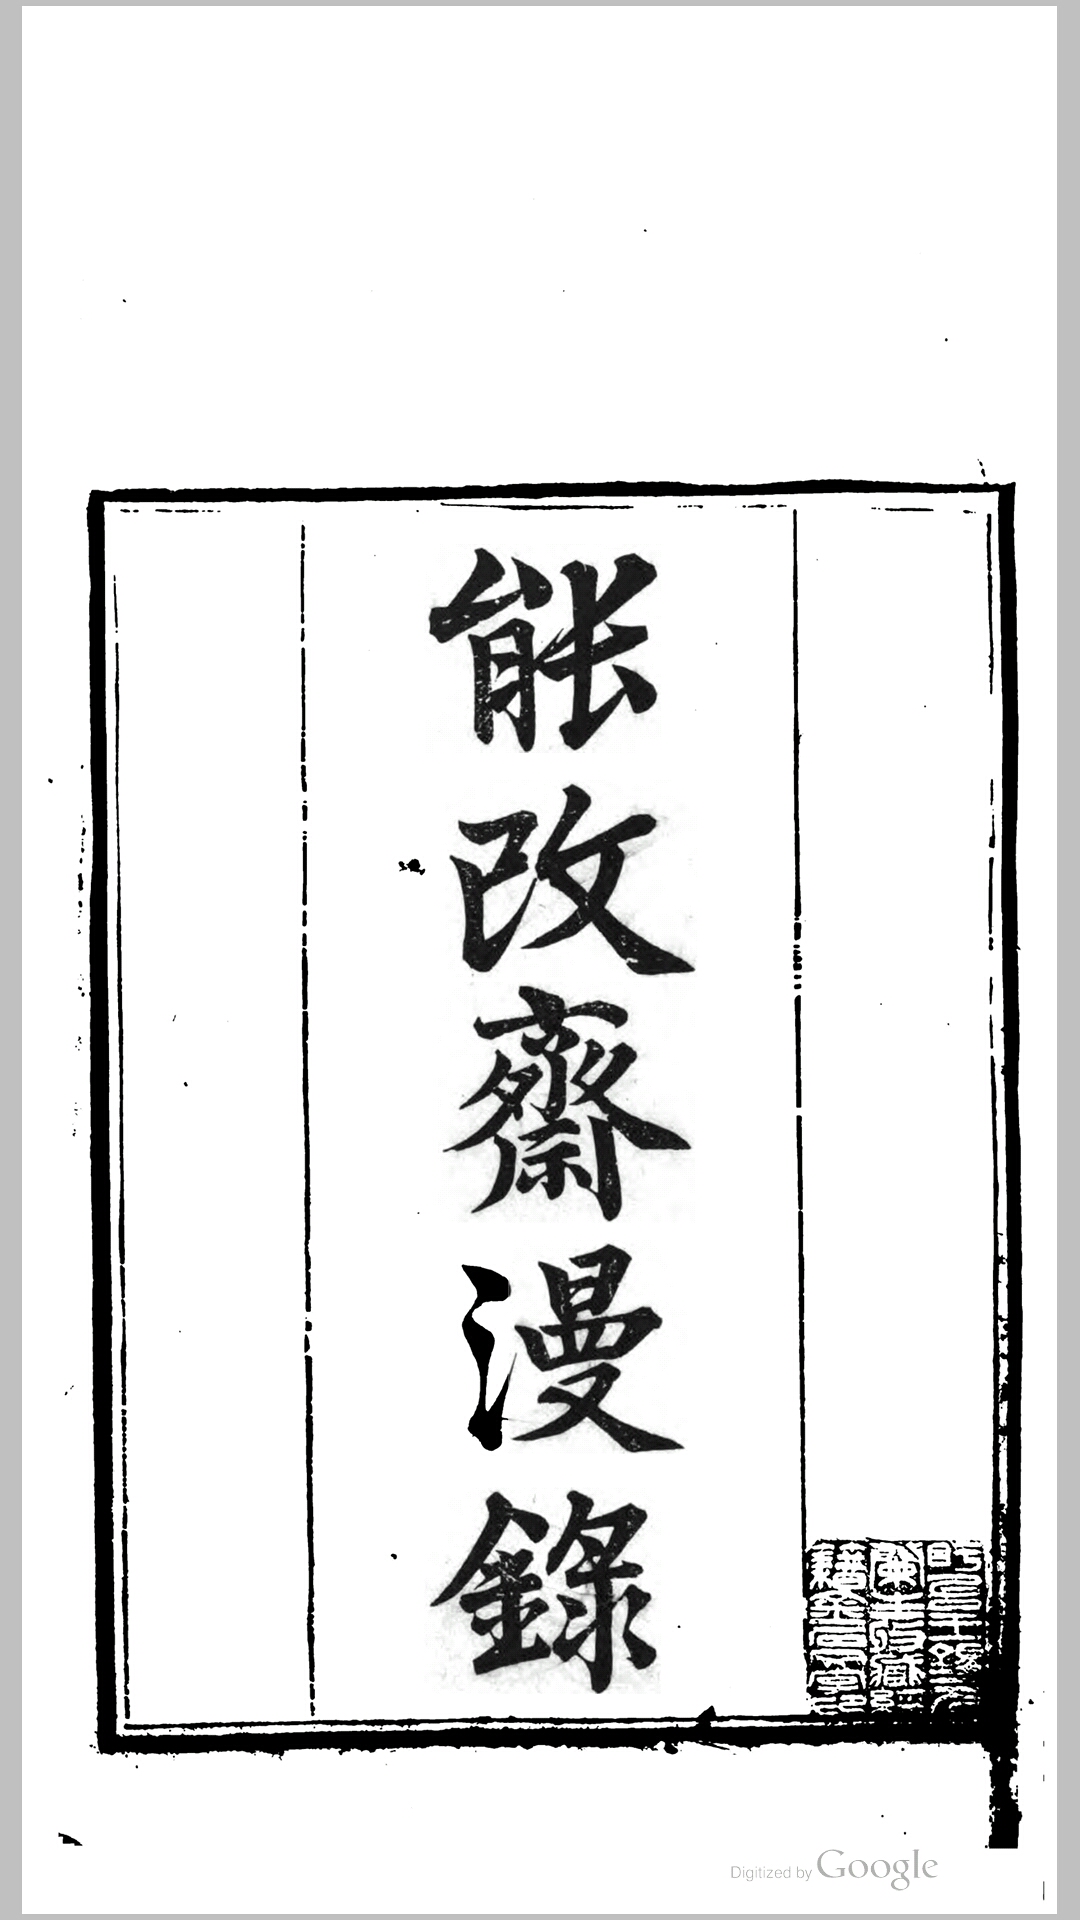 能改齋漫錄
Digitized by Google